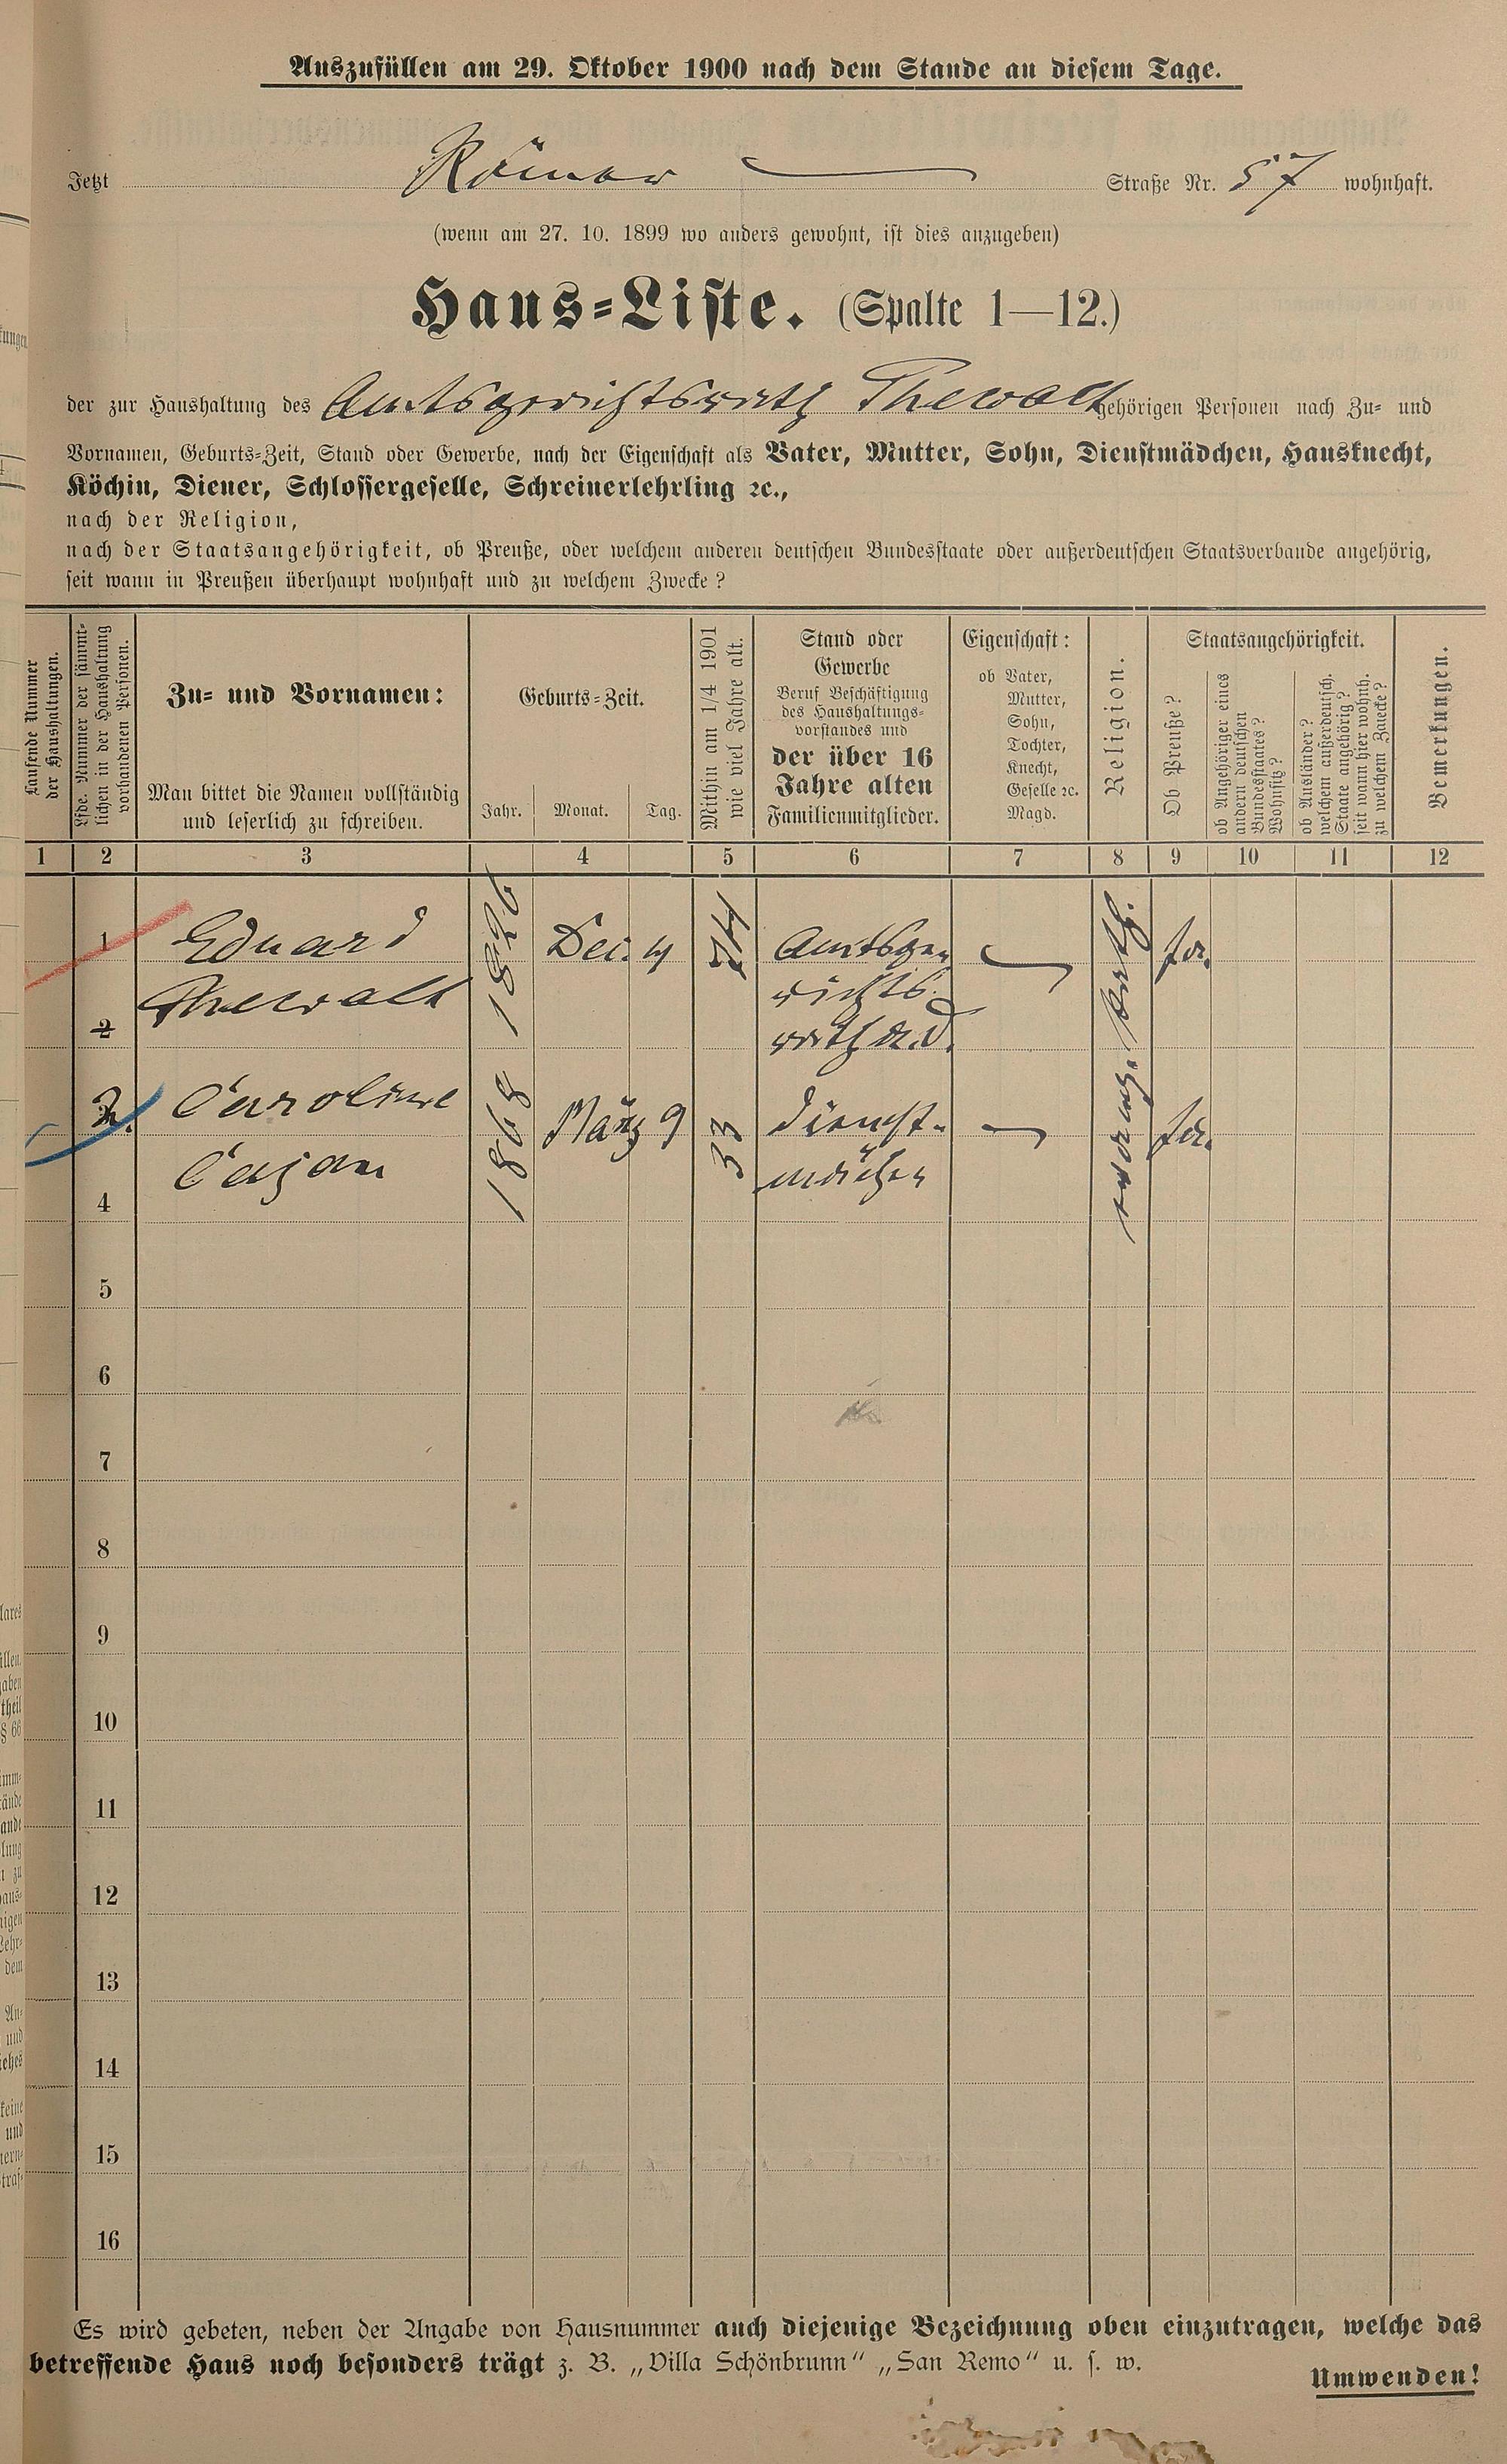 Auszufüllen am 29. Oktober 1900 nach dem Stande an diesem Tage.
Jetzt Römer Straße Nr. 57 wohnhaft.
(wenn am 27. 10. 1899 wo anders gewohnt, ist dies anzugeben)
Haus-Liste. (Spalte 1—12.)
der zur Haushaltung des Amtsgerichtsrath Thewalt gehörigen Personen nach Zu- und
Vornamen, Geburts-Zeit, Stand oder Gewerbe, nach der Eigenschaft als Vater, Mutter, Sohn, Dienstmädchen, Hausknecht,
Köchin, Diener, Schlossergeselle, Schreinerlehrling ꝛc.,
nach der Religion,
nach der Staatsangehörigkeit, ob Preuße, oder welchem anderen deutschen Bundesstaate oder außerdeutschen Staatsverbande angehörig,
seit wann in Preußen überhaupt wohnhaft und zu welchem Zwecke?
Laufende Nummer
der Haushaltungen.
Lfde. Nummer der sämmt-
lichen in der Haushaltung
vorhandenen Personen.
Zu- und Vornamen:
Man bittet die Namen vollständig
und leserlich zu schreiben.
Geburts-Zeit.
Jahr. Monat. Tag.
Mithin am 1/4 1901
wie viel Jahre alt.
Stand oder
Gewerbe
Beruf Beschäftigung
des Haushaltungs-
vorstandes und
der über 16
Jahre alten
Familienmitglieder.
Eigenschaft:
ob Vater,
Mutter,
Sohn,
Tochter,
Knecht,
Geselle ꝛc.
Magd.
Religion.
Staatsangehörigkeit.
Ob Preuße?
ob Angehöriger eines
andern deutschen
Bundesstaates?
Wohnsitz?
ob Ausländer?
welchem außerdeutsch.
Staate angehörig?
seit wann hier wohnh.
zu welchem Zwecke?
Bemerkungen.
1 2 3 4 5 6 7 8 9 10 11 12
1 Eduard 1826 Dec. 4 74 Amtsge- kath. ja.
Thewalt richts-
2 rath a.D.
2. Caroline 1868 März 9 33 Dienst- evang. ja.
Cajan mädchen
4
5
6
7
8
9
10
11
12
13
14
15
16
Es wird gebeten, neben der Angabe von Hausnummer auch diejenige Bezeichnung oben einzutragen, welche das
betreffende Haus noch besonders trägt z. B. „Villa Schönbrunn“ „San Remo“ u. s. w.
Umwenden!